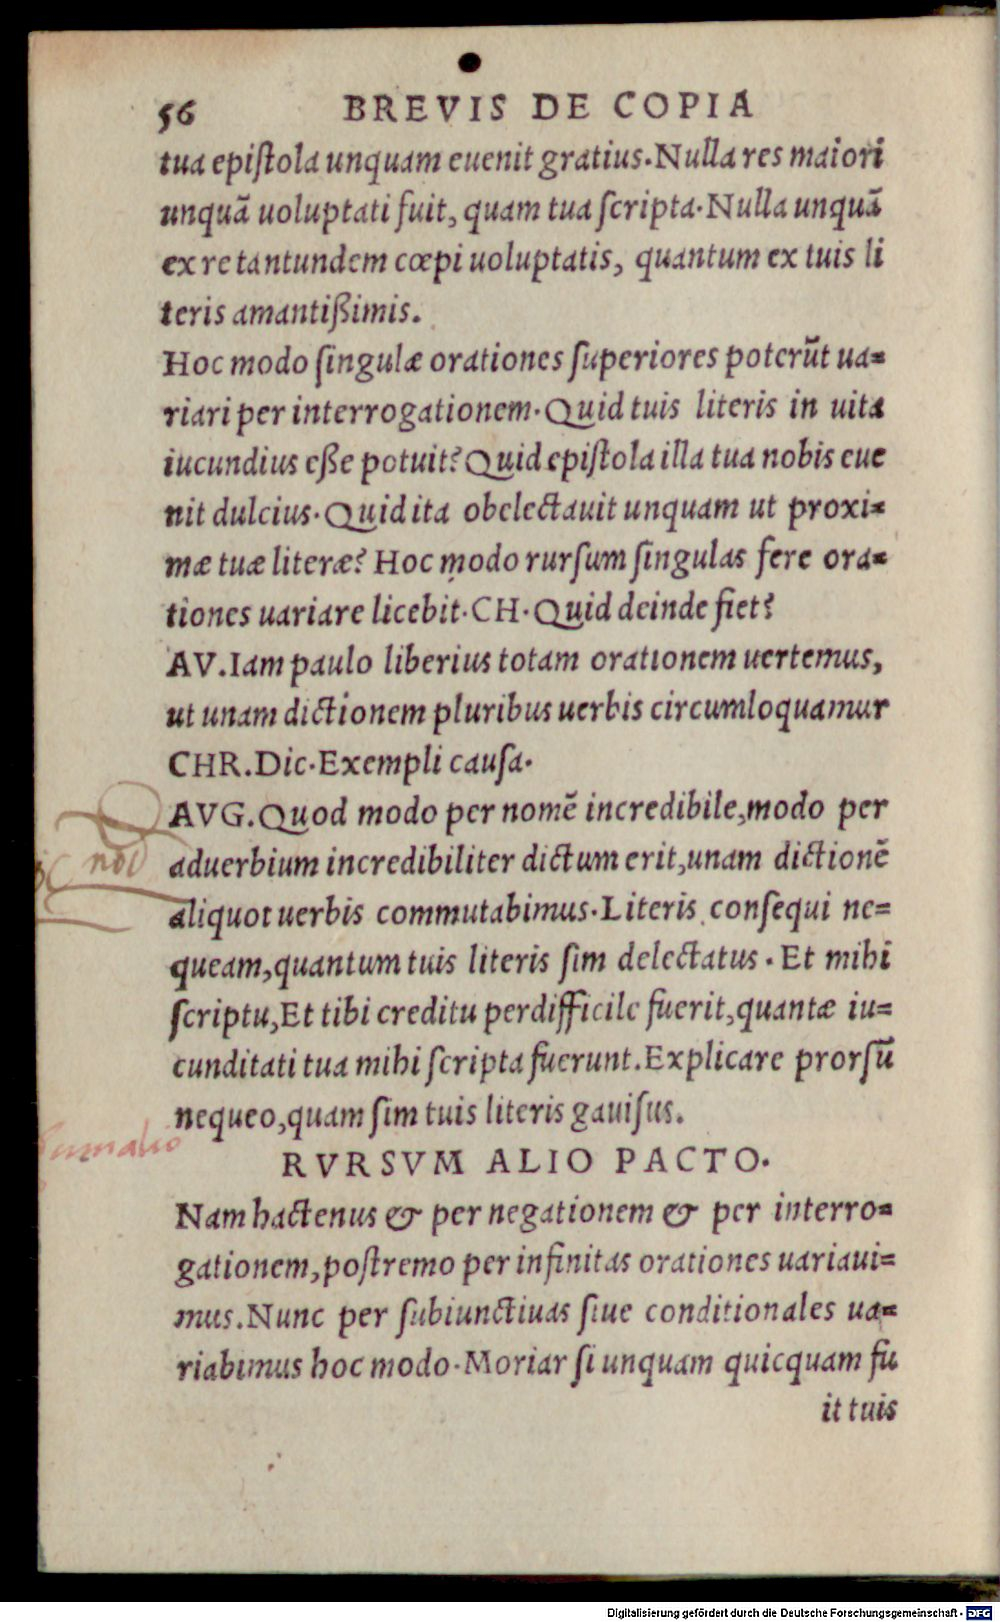 56 BREVIS DE COPIA
tua epiſtola unquam euenit gratius. Nulla res maiori
unquã uoluptati fuit, quam tua ſcripta. Nulla unquã
ex re tantundem cœpi uoluptatis, quantum ex tuis li
teris amantißimis.
Hoc modo ſingulæ orationes ſuperiores poterũt ua=
riari per interrogationem. Quid tuis literis in uita
iucundius eße potuit? Quid epiſtola illa tua nobis eue
nit dulcius. Quid ita obelectauit unquam ut proxi=
mæ tuæ literæ? Hoc modo rurſum ſingulas fere ora=
tiones uariare licebit. CH. Quid deinde fiet?
AV. Iam paulo liberius totam orationem uertemus,
ut unam dictionem pluribus uerbis circumloquamur
CHR. Dic. Exempli cauſa.
AVG. Quod modo per nomẽ incredibile, modo per
aduerbium incredibiliter dictum erit, unam dictionẽ
aliquot uerbis commutabimus. Literis conſequi ne=
queam, quantum tuis literis ſim delectatus. Et mihi
ſcriptu, Et tibi creditu perdifficile fuerit, quantæ iu=
cunditati tua mihi ſcripta fuerunt. Explicare prorſũ
nequeo, quam ſim tuis literis gauiſus.
RVRSVM ALIO PACTO.
Nam hactenus & per negationem & per interro=
gationem, poſtremo per infinitas orationes uariaui=
mus. Nunc per ſubiunctiuas ſiue conditionales ua=
riabimus hoc modo. Moriar ſi unquam quicquam fu
it tuis
Digitalisierung gefördert durch die Deutsche Forschungsgemeinschaft - DFG